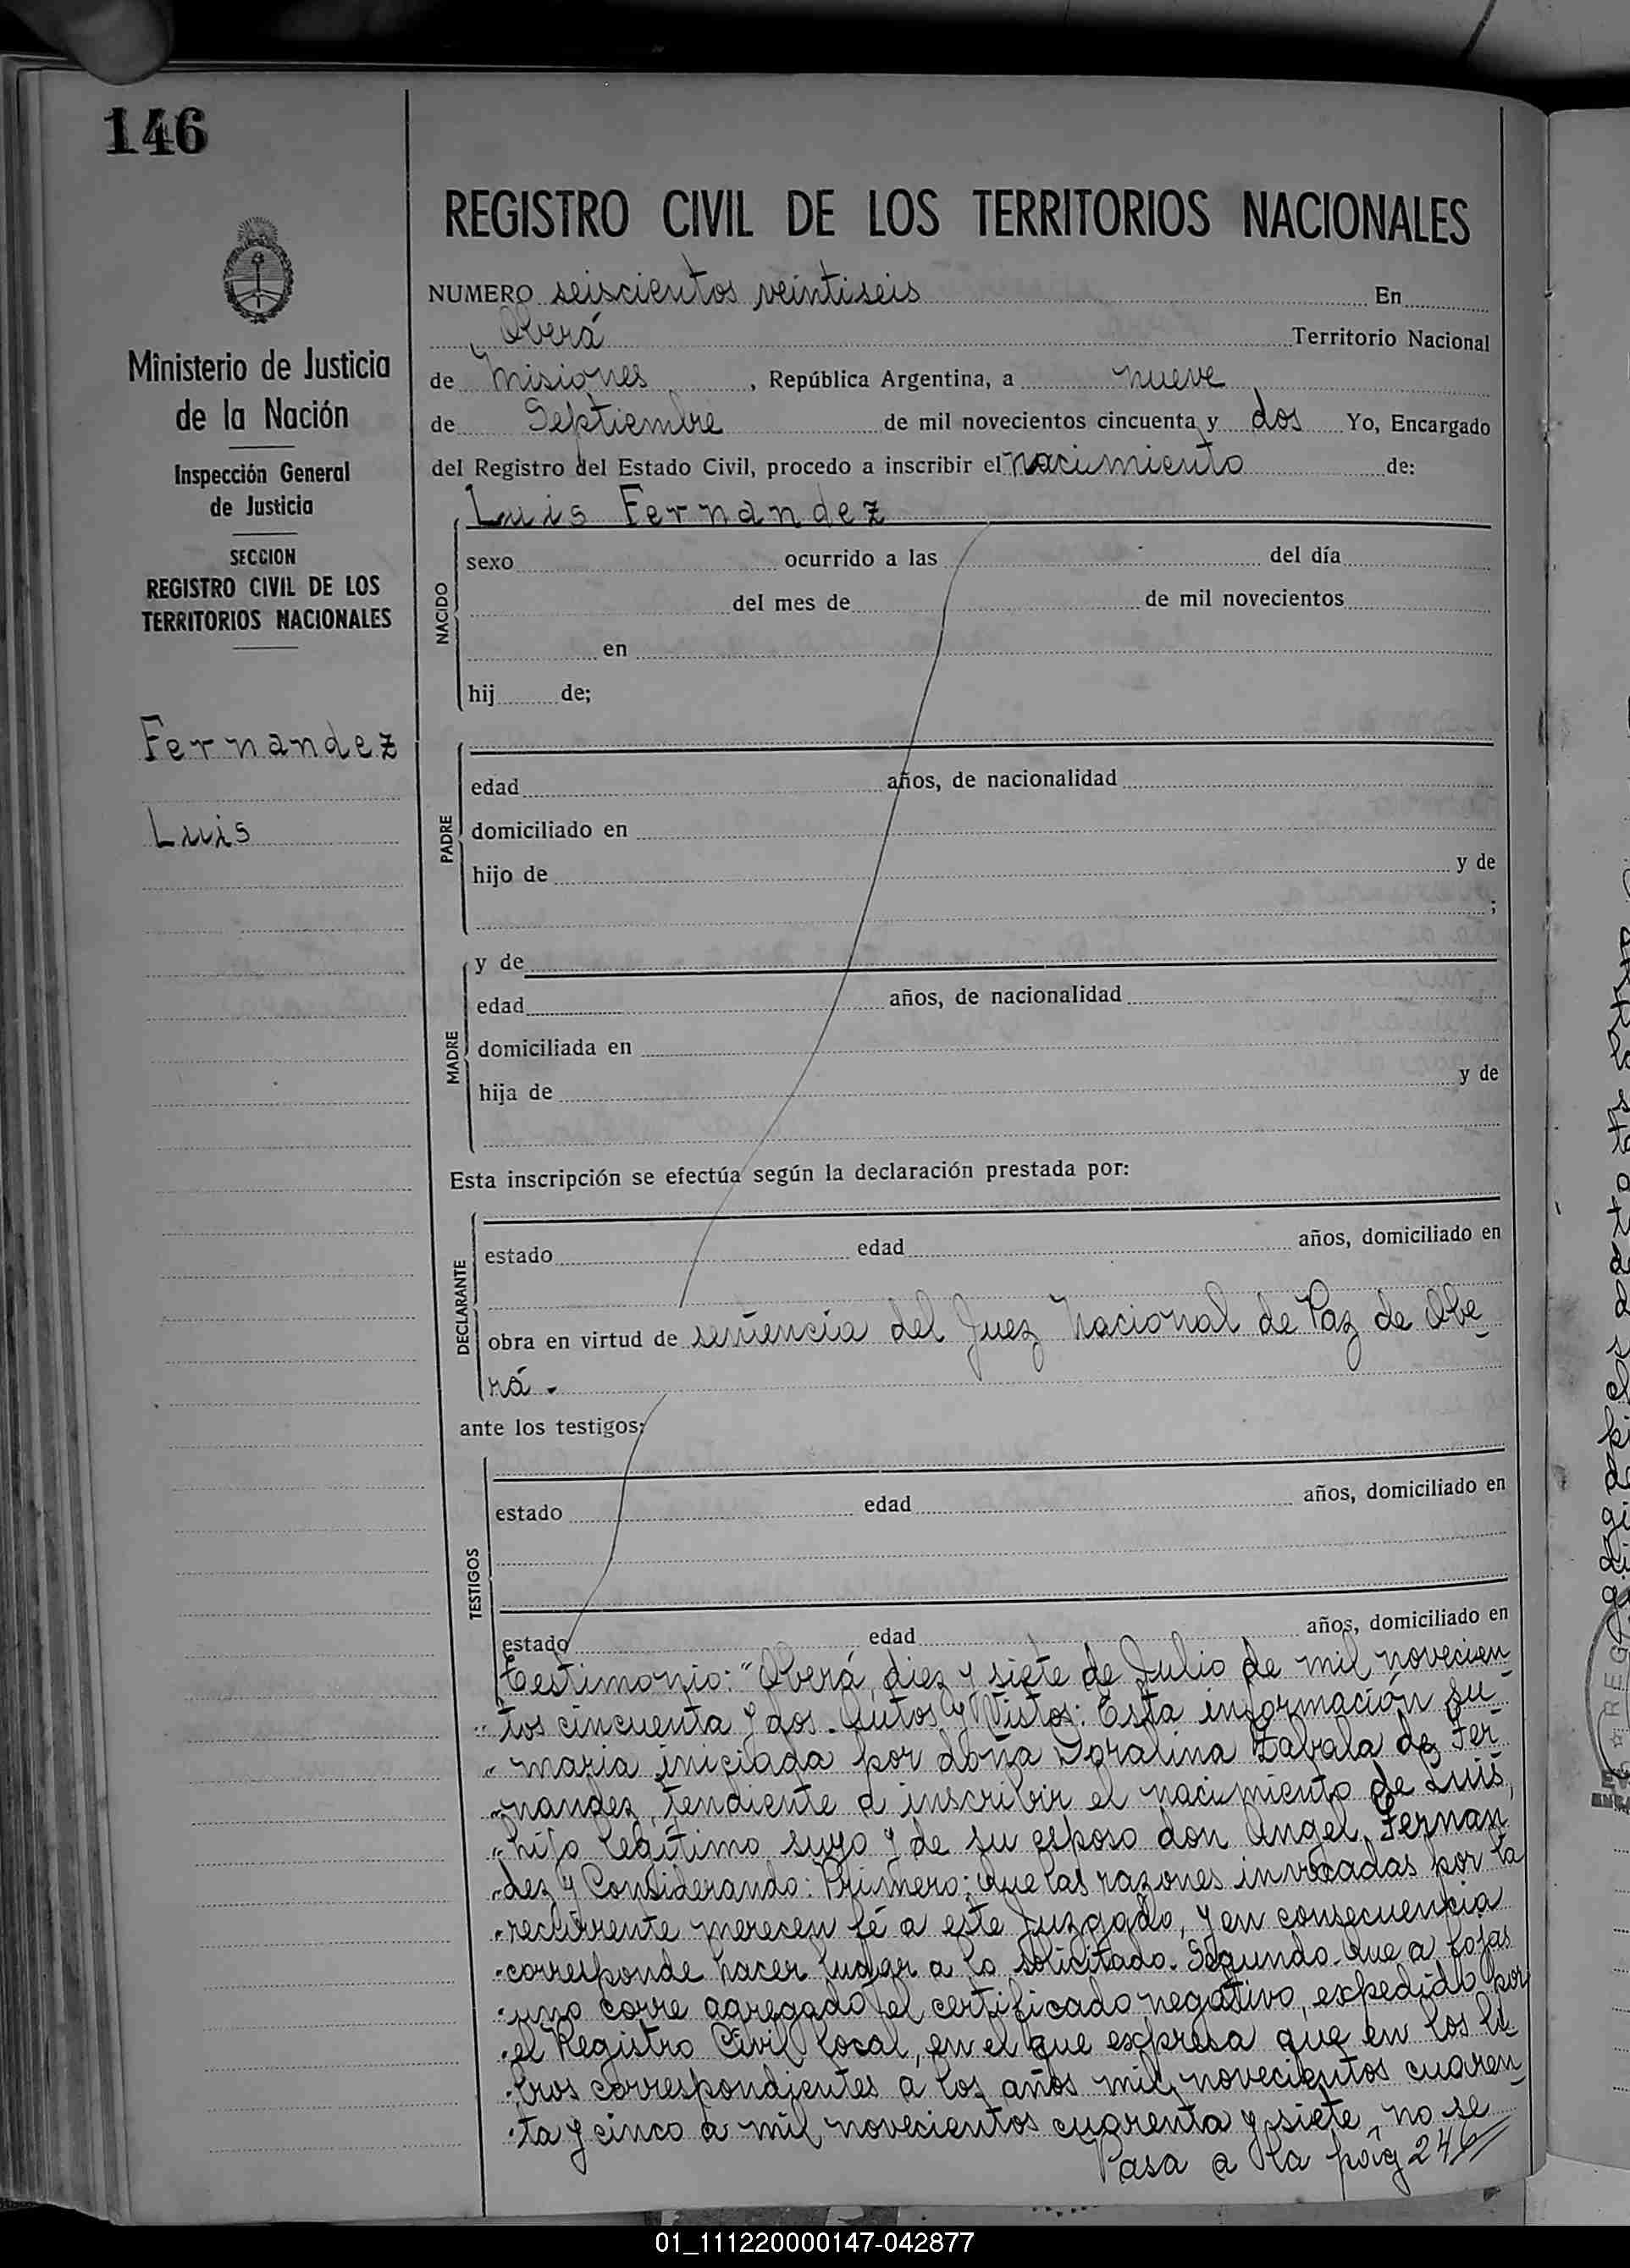 146
Ministerio de Justicia
de la Nación
Inspección General
de Justicia
SECCION
REGISTRO CIVIL DE LOS
TERRITORIOS NACIONALES
Fernandez
Luis
REGISTRO CIVIL DE LOS TERRITORIOS NACIONALES
NUMERO seiscientos veintiseis En
Oberá Territorio Nacional
de Misiones, República Argentina, a nueve
de Septiembre de mil novecientos cincuenta y dos Yo, Encargado
del Registro del Estado Civil, procedo a inscribir el nacimiento de:
Luis Fernandez
NACIDO
sexo ocurrido a las del día
del mes de de mil novecientos
en
hij de;
PADRE
edad años, de nacionalidad
domiciliado en
hijo de y de
;
MADRE
y de
edad años, de nacionalidad
domiciliada en
hija de y de
Esta inscripción se efectúa según la declaración prestada por:
DECLARANTE
estado edad años, domiciliado en
obra en virtud de sentencia del Juez Nacional de Paz de Obe-
rá.-
ante los testigos:
TESTIGOS
estado edad años, domiciliado en
estado edad años, domiciliado en
Testimonio: "Oberá, diez y siete de Julio de mil novecien-
" tos cincuenta y dos. Autos y Vistos: Esta información su-
" maria iniciada por doña Doralina Zabala de Fer-
" nandez, tendiente a inscribir el nacimiento de Luis,
" hijo legítimo suyo y de su esposo don Angel Fernan-
" dez y Considerando: Primero: Que las razones invocadas por la
" recurrente merecen fé a este Juzgado, y en consecuencia
" corresponde hacer lugar a lo solicitado. Segundo. Que a fojas
" uno corre agregado el certificado negativo, expedido por
" el Registro Civil local, en el que expresa que en los li-
" bros correspondientes a los años mil novecientos cuaren-
" ta y cinco a mil novecientos cuarenta y siete, no se
Pasa a la pág 246
01_111220000147-042877